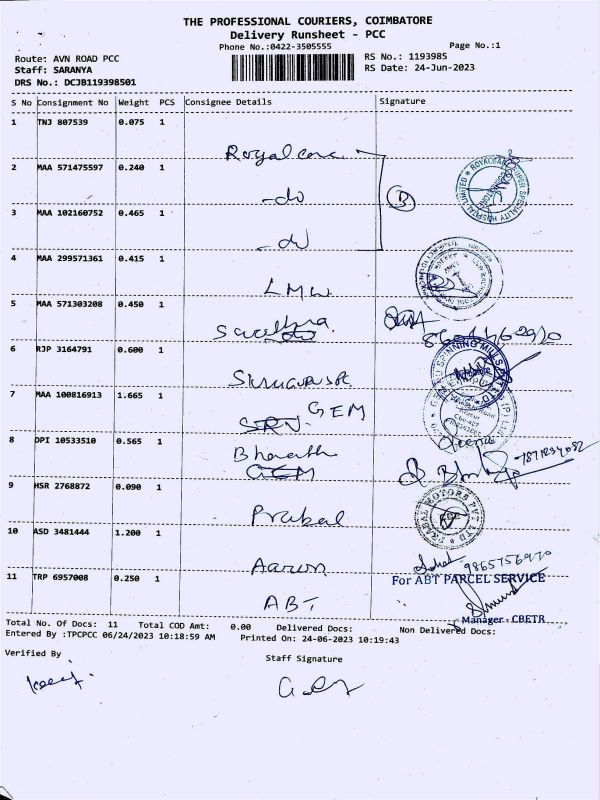 THE PROFESSIONAL COURIERS, COIMBATORE
Delivery Runsheet - PCC
Phone No.:0422-3505555
Page No.:1
Route: AVN ROAD PCC
RS No.: 1193985
Staff: SARANYA
RS Date: 24-Jun-2023
DRS No.: DCJB119398501
S No Consignment No Weight PCS Consignee Details Signature
1 TNJ 807539 0.075 1
Royal care
2 MAA 571475597 0.240 1
-do
3 MAA 102160752 0.465 1
-do
4 MAA 299571361 0.415 1
LMW
5 MAA 571303208 0.450 1
6 RJP 3164791 0.600 1
7 MAA 100816913 1.665 1
SRN GEM
8 DPI 10533510 0.565 1
Bharath
GEM
9 HSR 2768872 0.090 1
Prabal
10 ASD 3481444 1.200 1
Aaron
For ABT PARCEL SERVICE
11 TRP 6957008 0.250 1
ABT
Manager - CBETR
Total No. Of Docs: 11 Total COD Amt: 0.00 Delivered Docs: Non Delivered Docs:
Entered By :TPCPCC 06/24/2023 10:18:59 AM Printed On: 24-06-2023 10:19:43
Verified By
Staff Signature